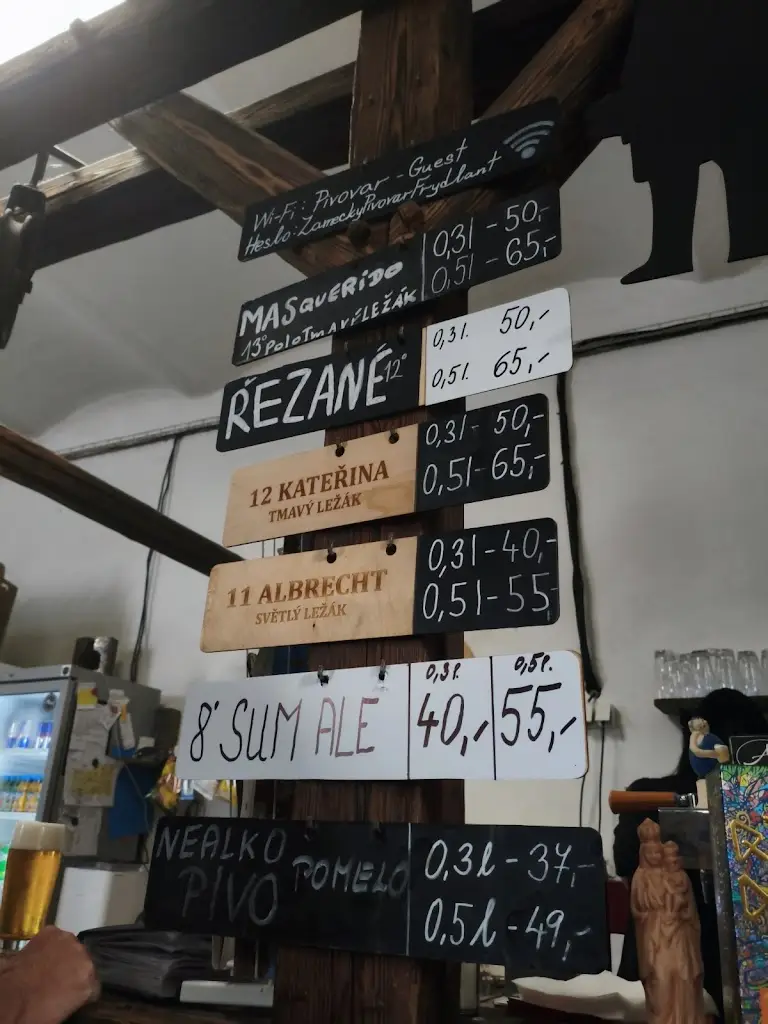 Wi-Fi: Pivovar - Guest
Heslo: ZameckyPivovarFrydlant
MASQUERÍDO
13° PoloTmAVÝ LEŽÁK
0,3l - 50,-
0,5l - 65,-
ŘEZANÉ 12°
0,3l. 50,-
0,5l. 65,-
12 KATEŘINA
TMAVÝ LEŽÁK
0,3l - 50,-
0,5l - 65,-
11 ALBRECHT
SVĚTLÝ LEŽÁK
0,3l - 40,-
0,5l - 55
8° SUM ALE
0,3l. 40,-
0,5l. 55,-
NEALKO
PIVO POMELO
0,3l - 37,-
0,5l - 49,-